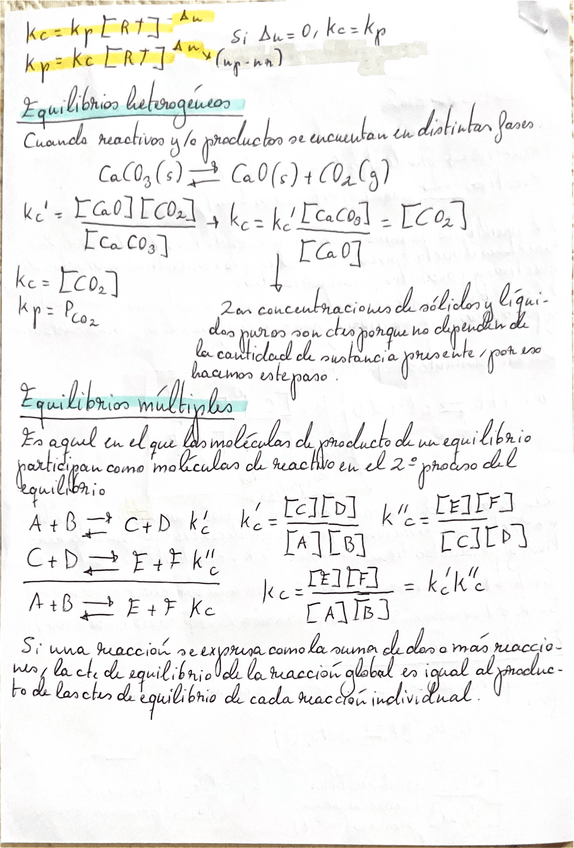 Kc = Kp [RT]^-Δn   Si Δn = 0, Kc = Kp
Kp = Kc [RT]^Δn → (np - nr)
Equilibrios heterogéneos
Cuando reactivos y/o productos se encuentan en distintas fases.
CaCO₃(s) ⇌ CaO(s) + CO₂(g)
Kc' = [CaO][CO₂] / [CaCO₃] → Kc = Kc' [CaCO₃] / [CaO] = [CO₂]
Kc = [CO₂]
Kp = P_CO₂
Las concentraciones de sólidos y líqui-
dos puros son ctes porque no dependen de
la cantidad de sustancia presente, por eso
hacemos este paso.
Equilibrios múltiples
Es aquel en el que las moléculas de producto de un equilibrio
participan como moléculas de reactivo en el 2º proceso del
equilibrio
A + B ⇌ C + D  Kc'   Kc' = [C][D] / [A][B]   K''c = [E][F] / [C][D]
C + D ⇌ E + F  K''c
A + B ⇌ E + F  Kc   Kc = [E][F] / [A][B] = Kc' K''c
Si una reacción se expresa como la suma de dos o más reaccio-
nes, la cte de equilibrio de la reacción global es igual al produc-
to de las ctes de equilibrio de cada reacción individual.